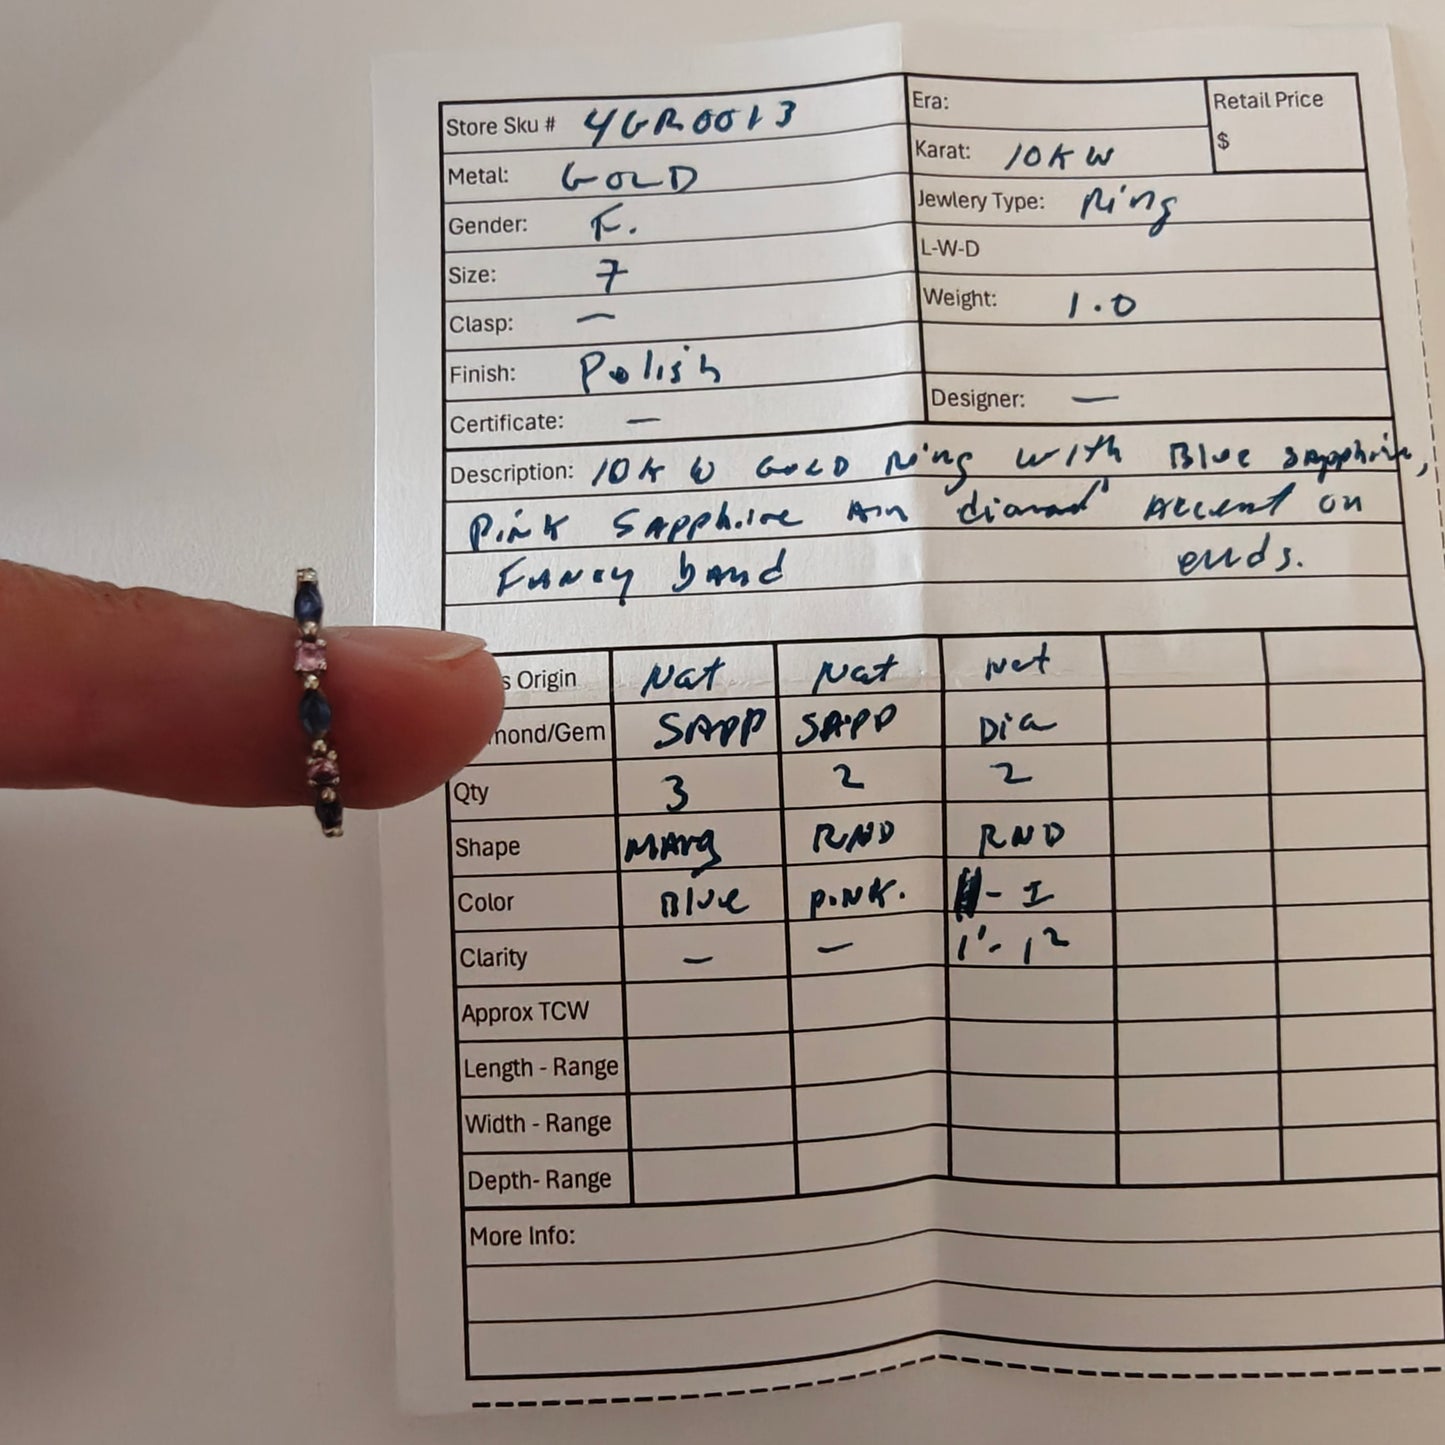 Store Sku # YGR0013
Era:
Retail Price
$
Metal: GOLD
Karat: 10KW
Gender: F.
Jewlery Type: Ring
Size: 7
L-W-D
Clasp: —
Weight: 1.0
Finish: Polish
Certificate: —
Designer: —
Description: 10K W GOLD Ring with Blue Sapphire,
Pink Sapphire diamond Accent on
Fancy band ends.
s Origin Nat Nat Nat
mond/Gem SAPP SAPP Dia
Qty 3 2 2
Shape Marq RND RND
Color Blue Pink. - I
Clarity — — I¹- I²
Approx TCW
Length - Range
Width - Range
Depth- Range
More Info: